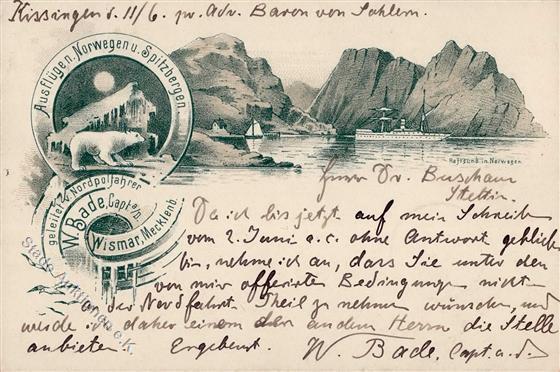 Kissingen d. 11/6. pr. Adr. Baron von Sahlern.
Ausflüge n. Norwegen u. Spitzbergen.
geleitet v. Nordpolfahrer
W. Bade, Capt a/D.
Wismar, Mecklenb.
Raftsund in Norwegen
Herrn Dr. Buschan
Stettin.
Da ich bis jetzt auf mein Schreiben
vom 2. Juni a. c. ohne Antwort geblieben
bin, nehme ich an, dass Sie unter den
von mir offerirten Bedingungen nicht
an der Nordfahrt Theil zu nehmen wünschen, und
werde ich daher einem der andern Herrn die Stelle
anbieten. Ergebenst. W. Bade, Capt. a. d.